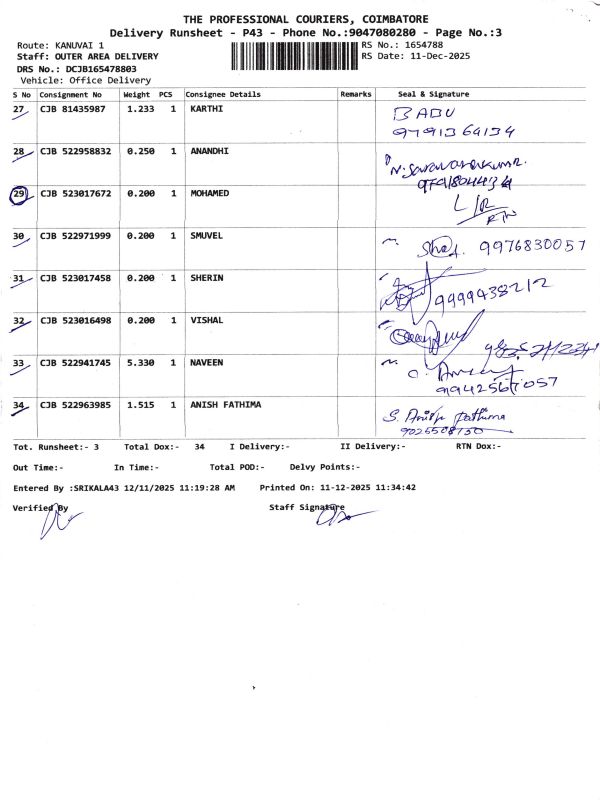 THE PROFESSIONAL COURIERS, COIMBATORE
Delivery Runsheet - P43 - Phone No.:9047080280 - Page No.:3
Route: KANUVAI 1
RS No.: 1654788
Staff: OUTER AREA DELIVERY
RS Date: 11-Dec-2025
DRS No.: DCJB165478803
Vehicle: Office Delivery
S No Consignment No Weight PCS Consignee Details Remarks Seal & Signature
27 CJB 81435987 1.233 1 KARTHI BABU
9791364134
28 CJB 522958832 0.250 1 ANANDHI N. Saravanakumar.
29 CJB 523017672 0.200 1 MOHAMED L/R
RTN
30 CJB 522971999 0.200 1 SMUVEL 9976830057
31 CJB 523017458 0.200 1 SHERIN 9999438212
32 CJB 523016498 0.200 1 VISHAL
33 CJB 522941745 5.330 1 NAVEEN
9942567057
34 CJB 522963985 1.515 1 ANISH FATHIMA S. Anish Fathima
9025508750
Tot. Runsheet:- 3 Total Dox:- 34 I Delivery:- II Delivery:- RTN Dox:-
Out Time:- In Time:- Total POD:- Delvy Points:-
Entered By :SRIKALA43 12/11/2025 11:19:28 AM Printed On: 11-12-2025 11:34:42
Verified By Staff Signature